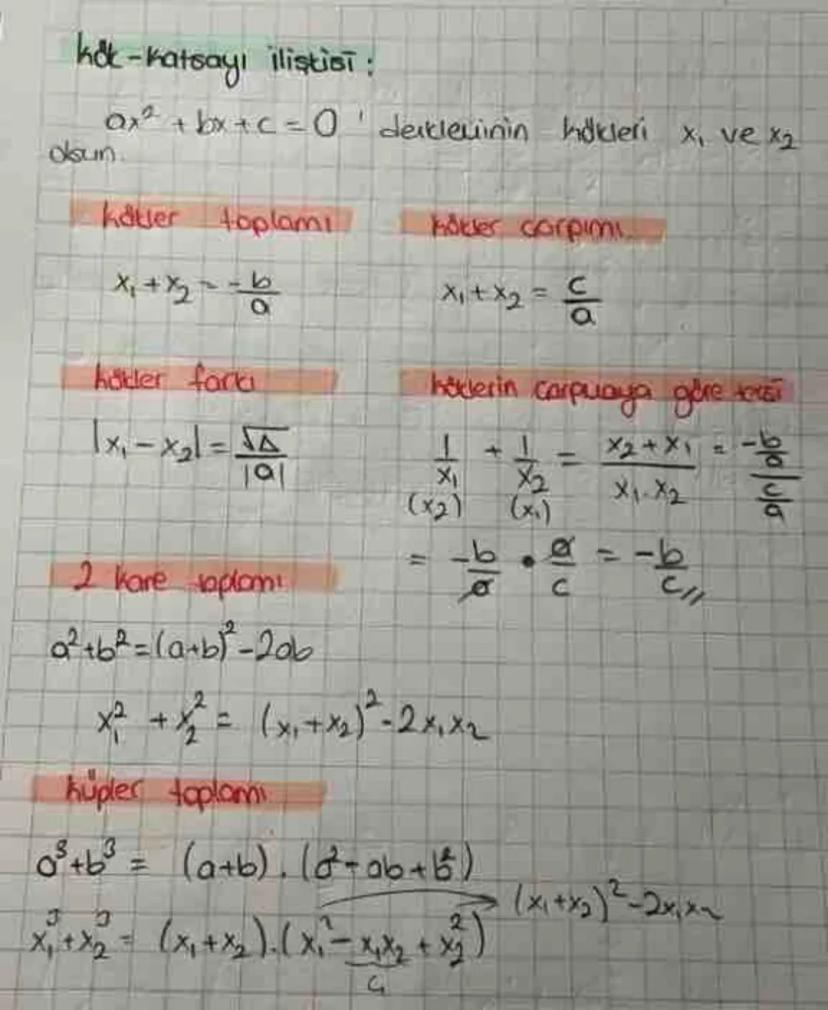 kök-katsayı ilişkisi:
ax² + bx + c = 0 ' denkleminin kökleri x₁ ve x₂
olsun.
kökler toplamı
x₁ + x₂ = -b/a
kökler çarpımı
x₁ + x₂ = c/a
kökler farkı
|x₁ - x₂| = √Δ/|a|
köklerin çarpmaya göre tersi
1/x₁ + 1/x₂ = (x₂ + x₁)/(x₁.x₂) = (-b/a)/(c/a)
(x₂) (x₁)
= -b/a • a/c = -b/c //
2 kare toplamı
a² + b² = (a+b)² - 2ab
x₁² + x₂² = (x₁ + x₂)² - 2x₁x₂
küpler toplamı
a³ + b³ = (a+b).(a² - ab + b²)
(x₁ + x₂)² - 2x₁x₂
x₁³ + x₂³ = (x₁ + x₂).(x₁² - x₁x₂ + x₂²)